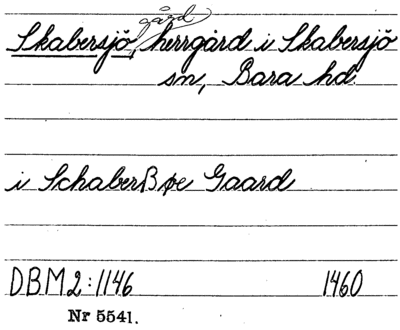 gård
Skabersjö, herrgård i Skabersjö
sn, Bara hd.
i Schaberßøe Gaard
DBM2:1146 1460
Nr 5541.